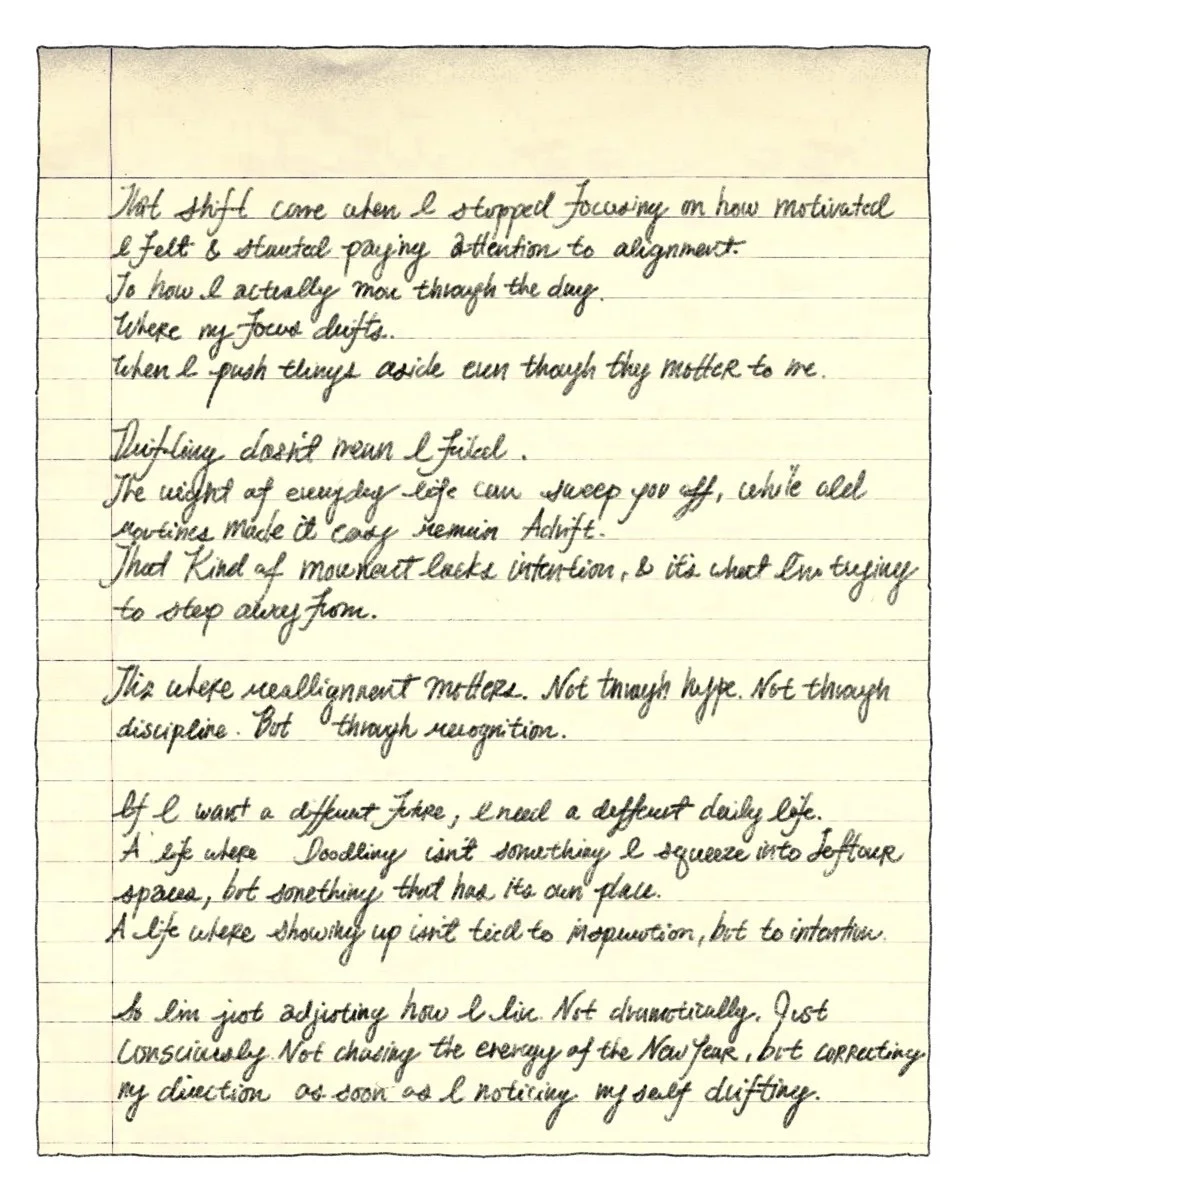 That shift came when I stopped focusing on how motivated
I felt & started paying attention to alignment.
To how I actually move through the day.
Where my focus drifts.
When I push things aside even though they matter to me.
Drifting doesn't mean I failed.
The weight of everyday life can sweep you off, while old
routines made it easy remain Adrift.
That Kind of movement lacks intention, & it's what I'm trying
to step away from.
This where reallignment matters. Not through hype. Not through
discipline. But through recognition.
If I want a different future, I need a different daily life.
A life where Doodling isn't something I squeeze into leftover
spaces, but something that has its own place.
A life where showing up isn't tied to inspiration, but to intention.
So I'm just adjusting how I live. Not dramatically. Just
consciously. Not chasing the energy of the New Year, but correcting
my direction as soon as I noticing my self drifting.